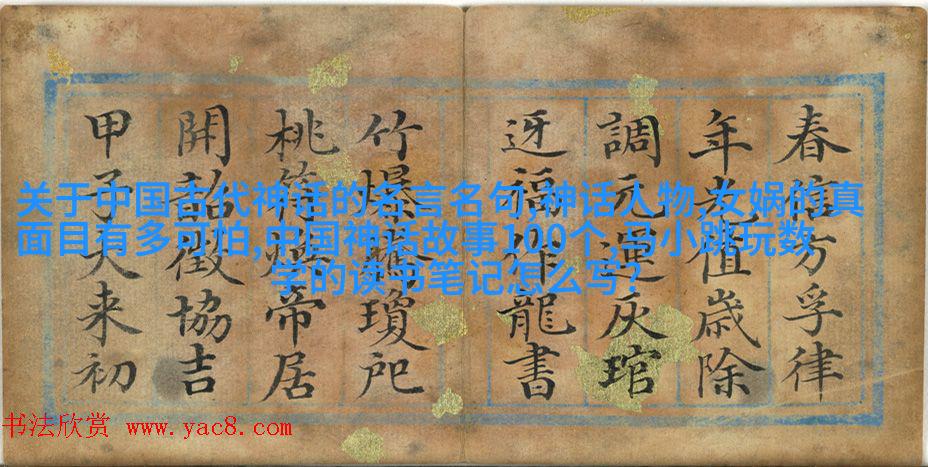 关于中国古代神话的名言名句,神话人物,女娲的真
面目有多可怕,中国神话故事100个,马小跳玩数
学的读书笔记怎么写?
春信方孚律
年光值歲除
調元運灰琯
迓福作龍書
竹爆瓊戺
桃符煥帝居
開韶徵協吉
甲子來初
书法欣赏 www.yac8.com